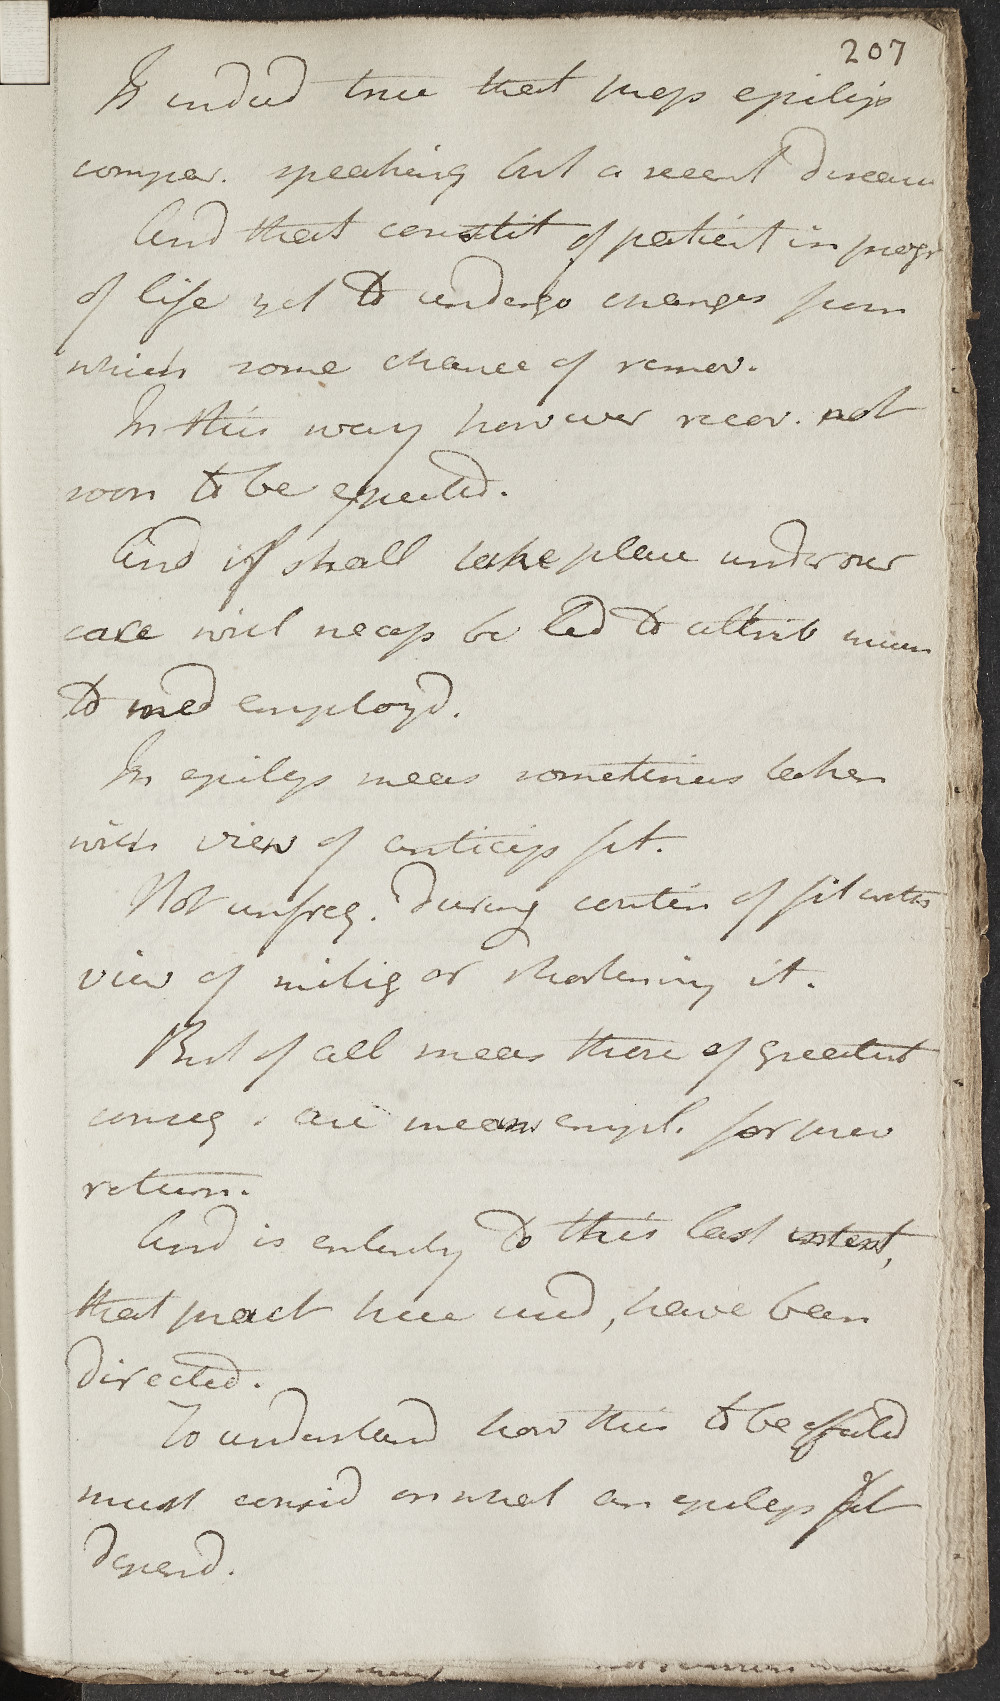 207
Is indeed true that pres epileps
compar. speaking but a recent disease
And that constit of patient in progr
of life yet to undergo changes from
which some chance of remov.
In this way however recov. not
soon to be expected.
And if shall take place under our
care will necess be led to attrib much
to med employd.
In epileps meas sometimes taken
with view of anticip fit.
Not unfreq. during contin of fit with
view of mitig or shortening it.
But of all meas those of greatest
conseq. are means empl. for prev
return.
And is entirely to this last intent,
that pract here used, have been
directed.
To understand how this to be effected
must consid on what an epileps fit
depend.